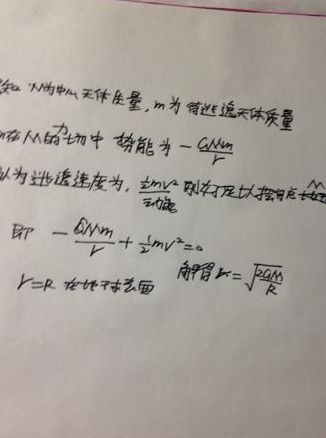 M为中心天体质量,m为待逃逸天体质量
m在M的力场中 势能为 -GMm/r
认为逃逸速度为, ½mv² 动能 M
即 -GMm/r + ½mv²=0
r=R 在地球表面 解得 v=√(2GM/R)